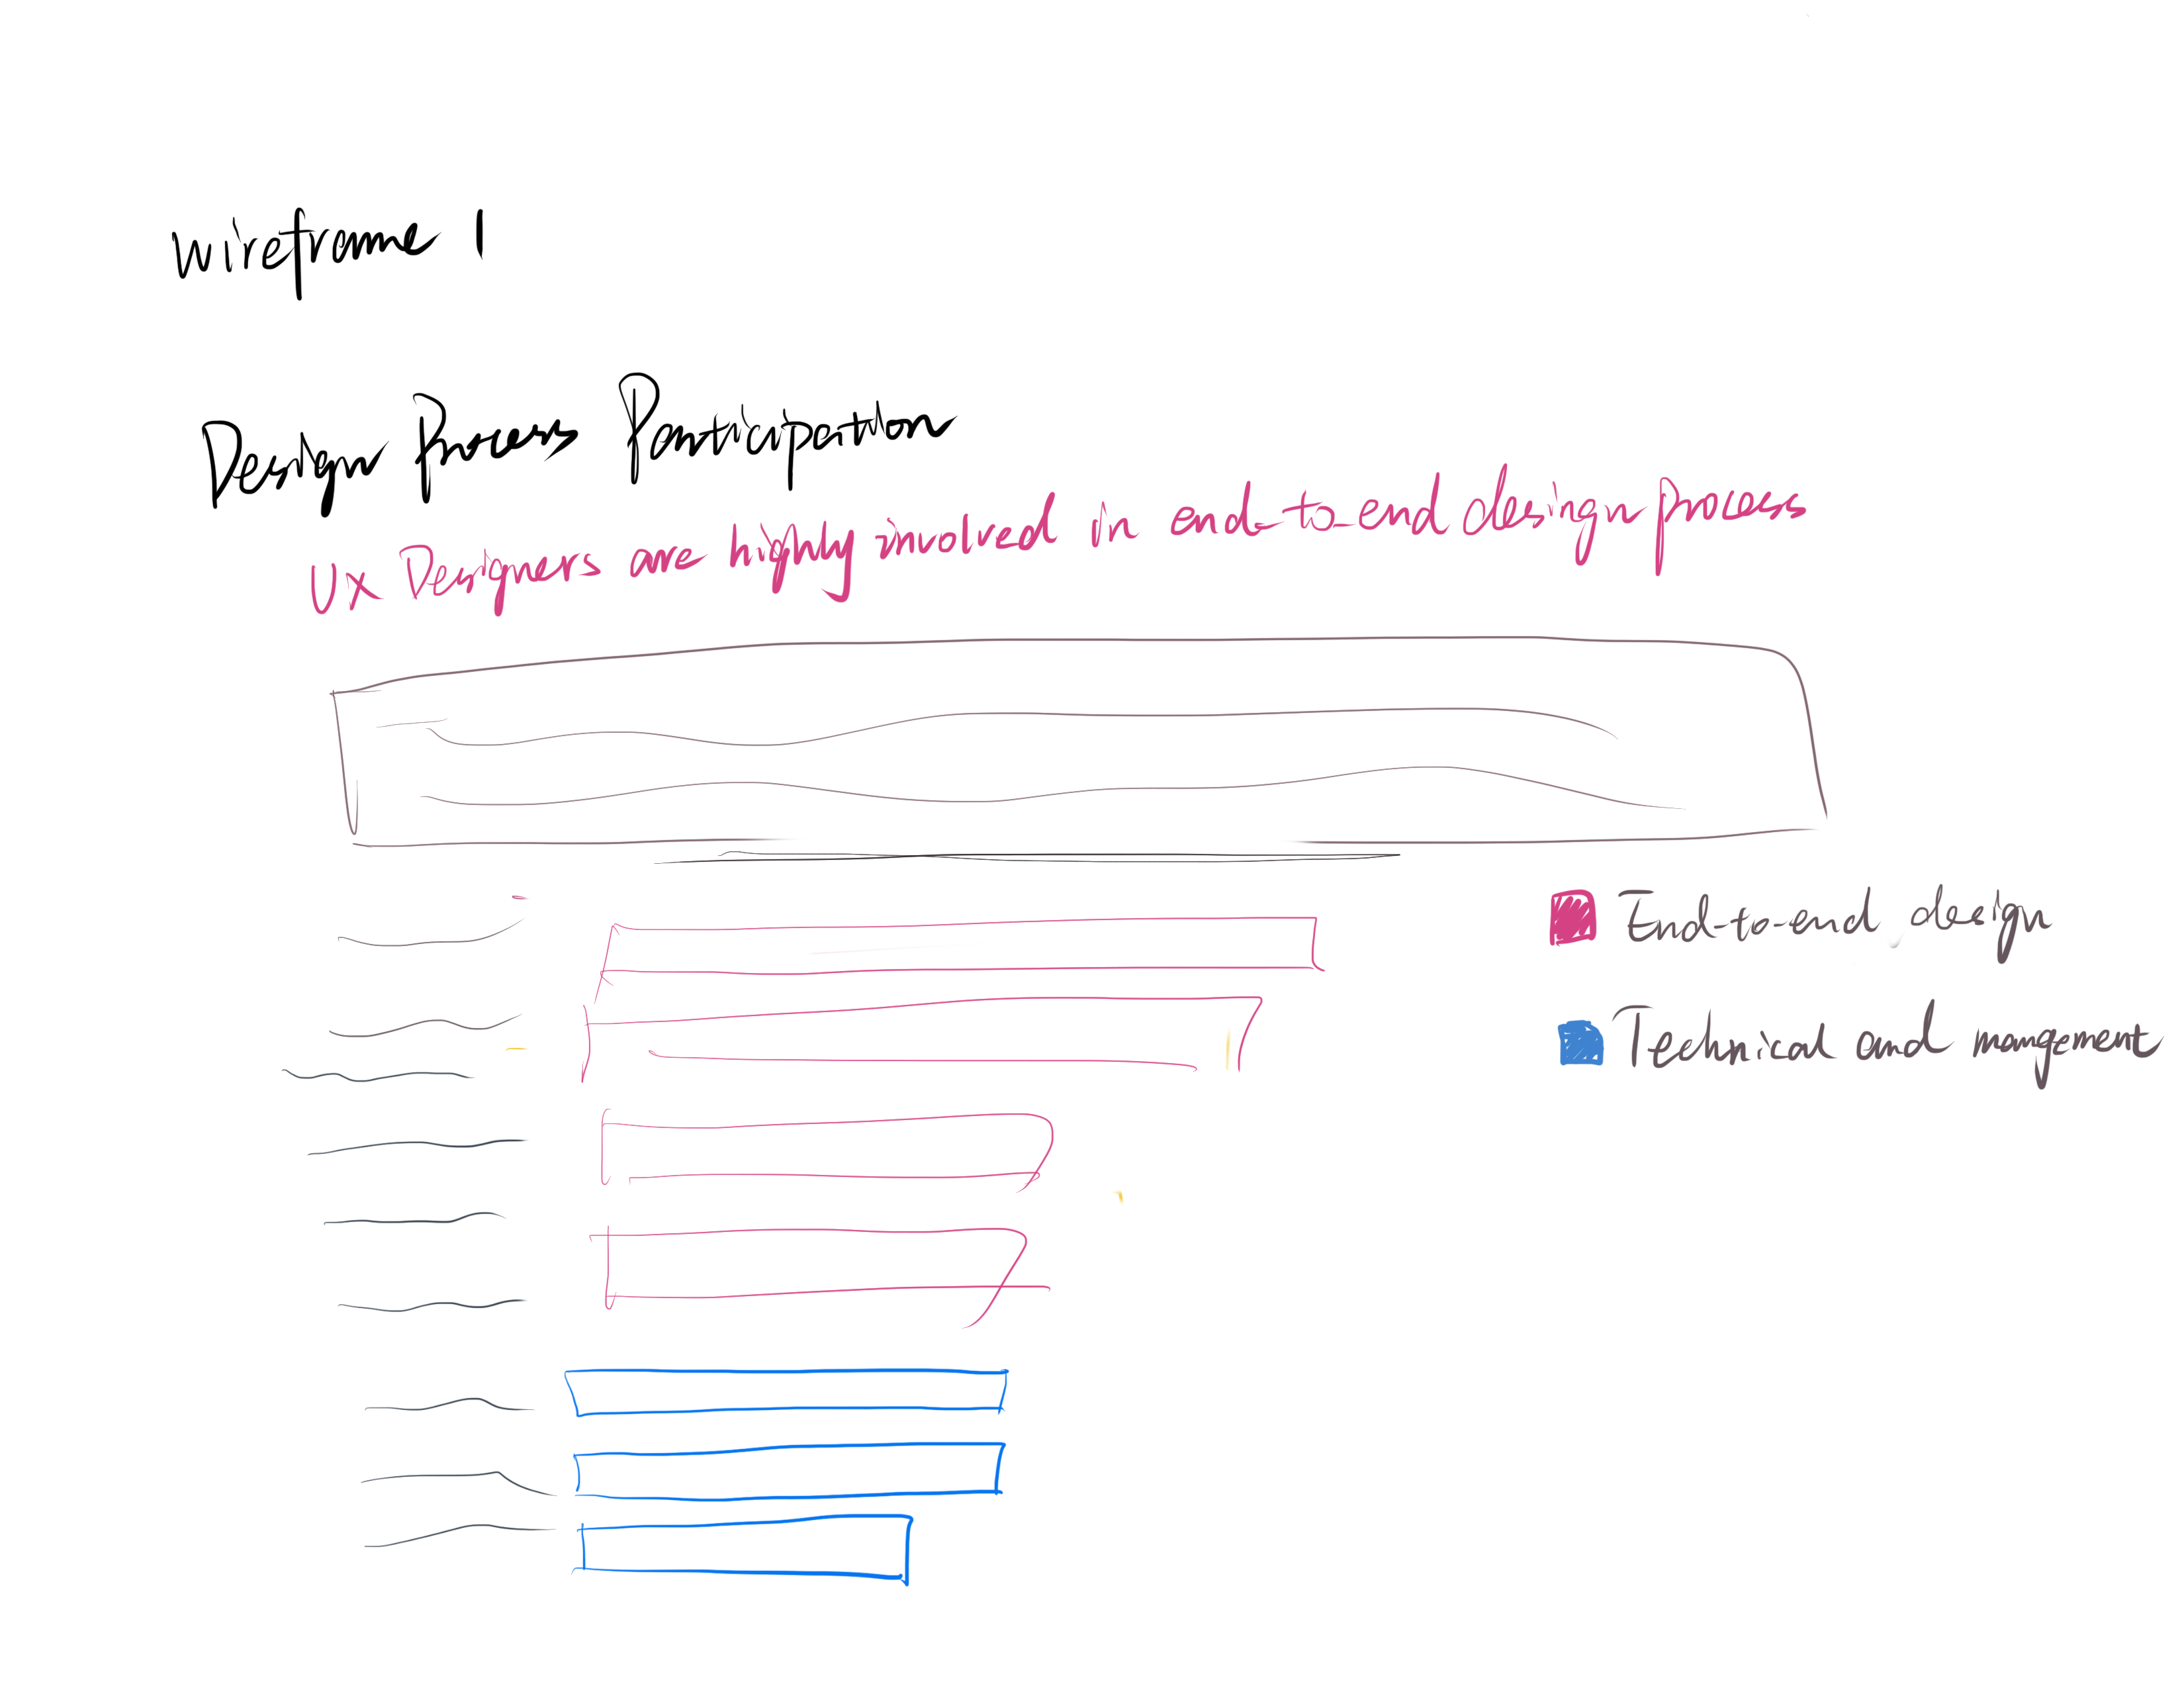 Wireframe 1
Design Process Participation
UX Designers are highly involved in end-to-end design process
End-to-end design
Technical and mangement